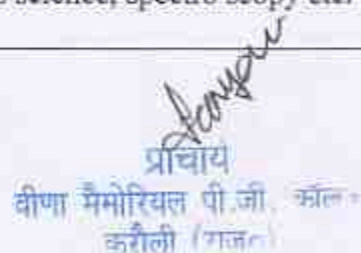 science, spectro scopy etc.
प्राचार्य
वीणा मैमोरियल पी.जी. कॉल
करौली (राज०)